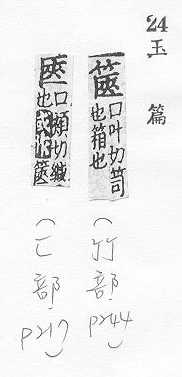 24
玉篇
篋口叶切笥
也箱也
(竹部 p244)
匧口頰切緘
也篋
(匚部 p217)